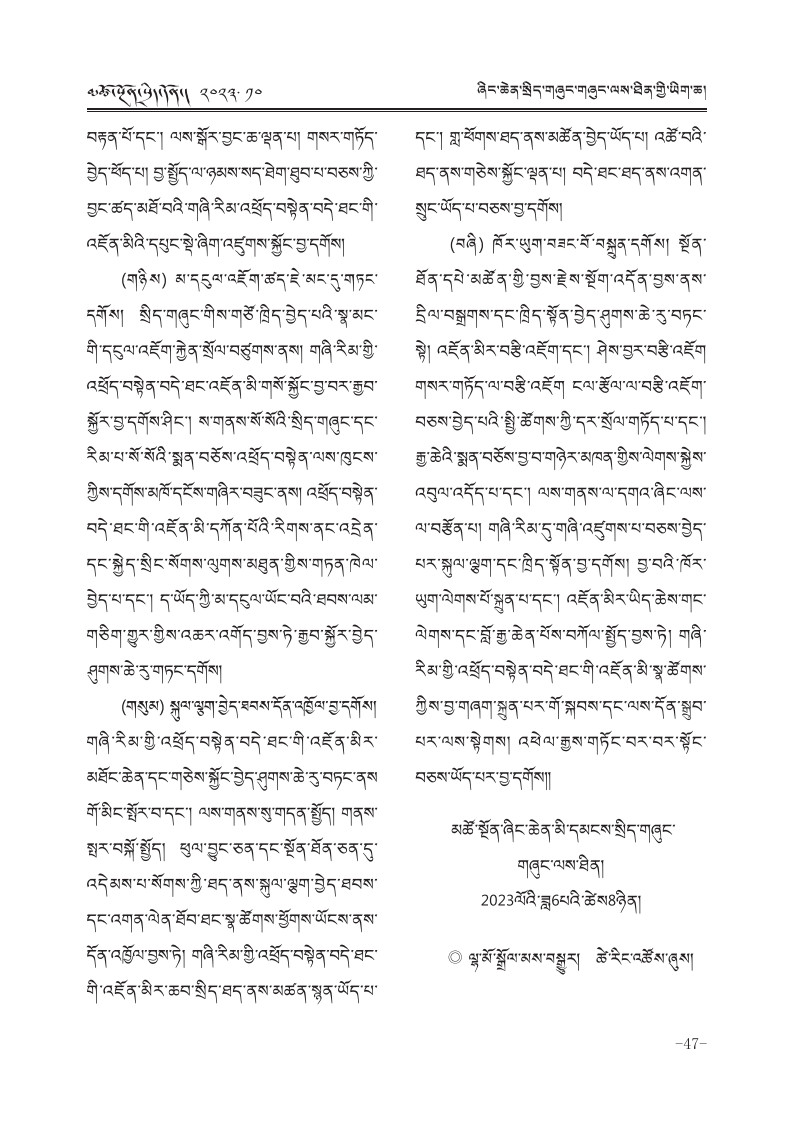 མཚོ་སྔོན་སྲིད་གཞུང་། ༢༠༢༣.༡༠
ཞིང་ཆེན་སྲིད་གཞུང་གཞུང་ལས་ཐིན་གྱི་ཡིག་ཆ།
བརྟན་པོ་དང་། ལས་སྒོར་བྱང་ཆ་ལྡན་པ། གསར་གཏོད་
བྱེད་ཕོད་པ། བྱ་སྤྱོད་ལ་ཉམས་སད་ཐེག་ཐུབ་པ་བཅས་ཀྱི་
བྱང་ཚད་མཐོ་བའི་གཞི་རིམ་འཕྲོད་བསྟེན་བདེ་ཐང་གི་
འཛོན་མིའི་དཔུང་སྡེ་ཞིག་འཛུགས་སྐྱོང་བྱ་དགོས།
(གཉིས) མ་དངུལ་འཇོག་ཚད་ཇེ་མང་དུ་གཏང་
དགོས། སྲིད་གཞུང་གིས་གཙོ་ཁྲིད་བྱེད་པའི་སྣ་མང་
གི་དངུལ་འཇོག་རྐྱེན་སྲོལ་བཙུགས་ནས། གཞི་རིམ་གྱི་
འཕྲོད་བསྟེན་བདེ་ཐང་འཛོན་མི་གསོ་སྐྱོང་བྱ་བར་རྒྱབ་
སྐྱོར་བྱ་དགོས་ཤིང་། ས་གནས་སོ་སོའི་སྲིད་གཞུང་དང་
རིམ་པ་སོ་སོའི་སྨན་བཅོས་འཕྲོད་བསྟེན་ལས་ཁུངས་
ཀྱིས་དགོས་མཁོ་དངོས་གཞིར་བཟུང་ནས། འཕྲོད་བསྟེན་
བདེ་ཐང་གི་འཛོན་མི་དཀོན་པོའི་རིགས་ནང་འདྲེན་
དང་སྐྱེད་སྲིང་སོགས་ལུགས་མཐུན་གྱིས་གཏན་ཁེལ་
བྱེད་པ་དང་། ད་ཡོད་ཀྱི་མ་དངུལ་ཡོང་བའི་ཐབས་ལམ་
གཅིག་གྱུར་གྱིས་འཆར་འགོད་བྱས་ཏེ་རྒྱབ་སྐྱོར་བྱེད་
ཤུགས་ཆེ་རུ་གཏང་དགོས།
(གསུམ) སྐུལ་ལྕག་བྱེད་ཐབས་དོན་འཁྱོལ་བྱ་དགོས།
གཞི་རིམ་གྱི་འཕྲོད་བསྟེན་བདེ་ཐང་གི་འཛོན་མིར་
མཐོང་ཆེན་དང་གཅེས་སྐྱོང་བྱེད་ཤུགས་ཆེ་རུ་བཏང་ནས
གོ་མིང་སྤོར་བ་དང་། ལས་གནས་སུ་གདན་སྤྱོད། གནས་
སྤར་བསྐོ་སྤྱོད། ཕུལ་བྱུང་ཅན་དང་སྔོན་ཐོན་ཅན་དུ་
འདེམས་པ་སོགས་ཀྱི་ཐད་ནས་སྐུལ་ལྕག་བྱེད་ཐབས་
དང་འགན་ལེན་ཐོབ་ཐང་སྣ་ཚོགས་ཕྱོགས་ཡོངས་ནས་
དོན་འཁྱོལ་བྱས་ཏེ། གཞི་རིམ་གྱི་འཕྲོད་བསྟེན་བདེ་ཐང་
གི་འཛོན་མིར་ཆབ་སྲིད་ཐད་ནས་མཚན་སྙན་ཡོད་པ་
དང་། གླ་ཕོགས་ཐད་ནས་མཚོན་བྱེད་ཡོད་པ། འཚོ་བའི་
ཐད་ནས་གཅེས་སྐྱོང་ལྡན་པ། བདེ་ཐང་ཐད་ནས་འགན་
སྲུང་ཡོད་པ་བཅས་བྱ་དགོས།
(བཞི) ཁོར་ཡུག་བཟང་པོ་བསྐྲུན་དགོས། སྔོན་
ཐོན་དཔེ་མཚོན་གྱི་བྱས་རྗེས་སྔོག་འདོན་བྱས་ནས་
དྲིལ་བསྒྲགས་དང་ཁྲིད་སྟོན་བྱེད་ཤུགས་ཆེ་རུ་བཏང་
སྟེ། འཛོན་མིར་བརྩི་འཇོག་དང་། ཤེས་བྱར་བརྩི་འཇོག
གསར་གཏོད་ལ་བརྩི་འཇོག ངལ་རྩོལ་ལ་བརྩི་འཇོག་
བཅས་བྱེད་པའི་སྤྱི་ཚོགས་ཀྱི་དར་སྲོལ་གཏོད་པ་དང་།
རྒྱ་ཆེའི་སྨན་བཅོས་བྱ་བ་གཉེར་མཁན་གྱིས་ལེགས་སྐྱེས་
འབུལ་འདོད་པ་དང་། ལས་གནས་ལ་དགའ་ཞིང་ལས་
ལ་བརྩོན་པ། གཞི་རིམ་དུ་གཞི་འཛུགས་པ་བཅས་བྱེད་
པར་སྐུལ་ལྕག་དང་ཁྲིད་སྟོན་བྱ་དགོས། བྱ་བའི་ཁོར་
ཡུག་ལེགས་པོ་སྐྲུན་པ་དང་། འཛོན་མིར་ཡིད་ཆེས་གང་
ལེགས་དང་བློ་རྒྱ་ཆེན་པོས་བཀོལ་སྤྱོད་བྱས་ཏེ། གཞི་
རིམ་གྱི་འཕྲོད་བསྟེན་བདེ་ཐང་གི་འཛོན་མི་སྣ་ཚོགས་
ཀྱིས་བྱ་གཞག་སྐྲུན་པར་གོ་སྐབས་དང་ལས་དོན་སྒྲུབ་
པར་ལས་སྟེགས། འཕེལ་རྒྱས་གཏོང་བར་བར་སྟོང་
བཅས་ཡོད་པར་བྱ་དགོས།།
མཚོ་སྔོན་ཞིང་ཆེན་མི་དམངས་སྲིད་གཞུང་
གཞུང་ལས་ཐིན།
2023ལོའི་ཟླ6པའི་ཚེས8ཉིན།
◎ ལྷ་མོ་སྒྲོལ་མས་བསྒྱུར། ཚེ་རིང་འཚོས་ཞུས།
-47-